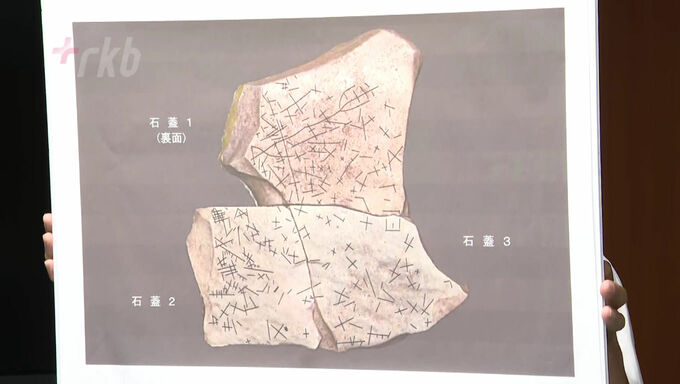 rkb
石蓋1
(裏面)
石蓋3
石蓋2